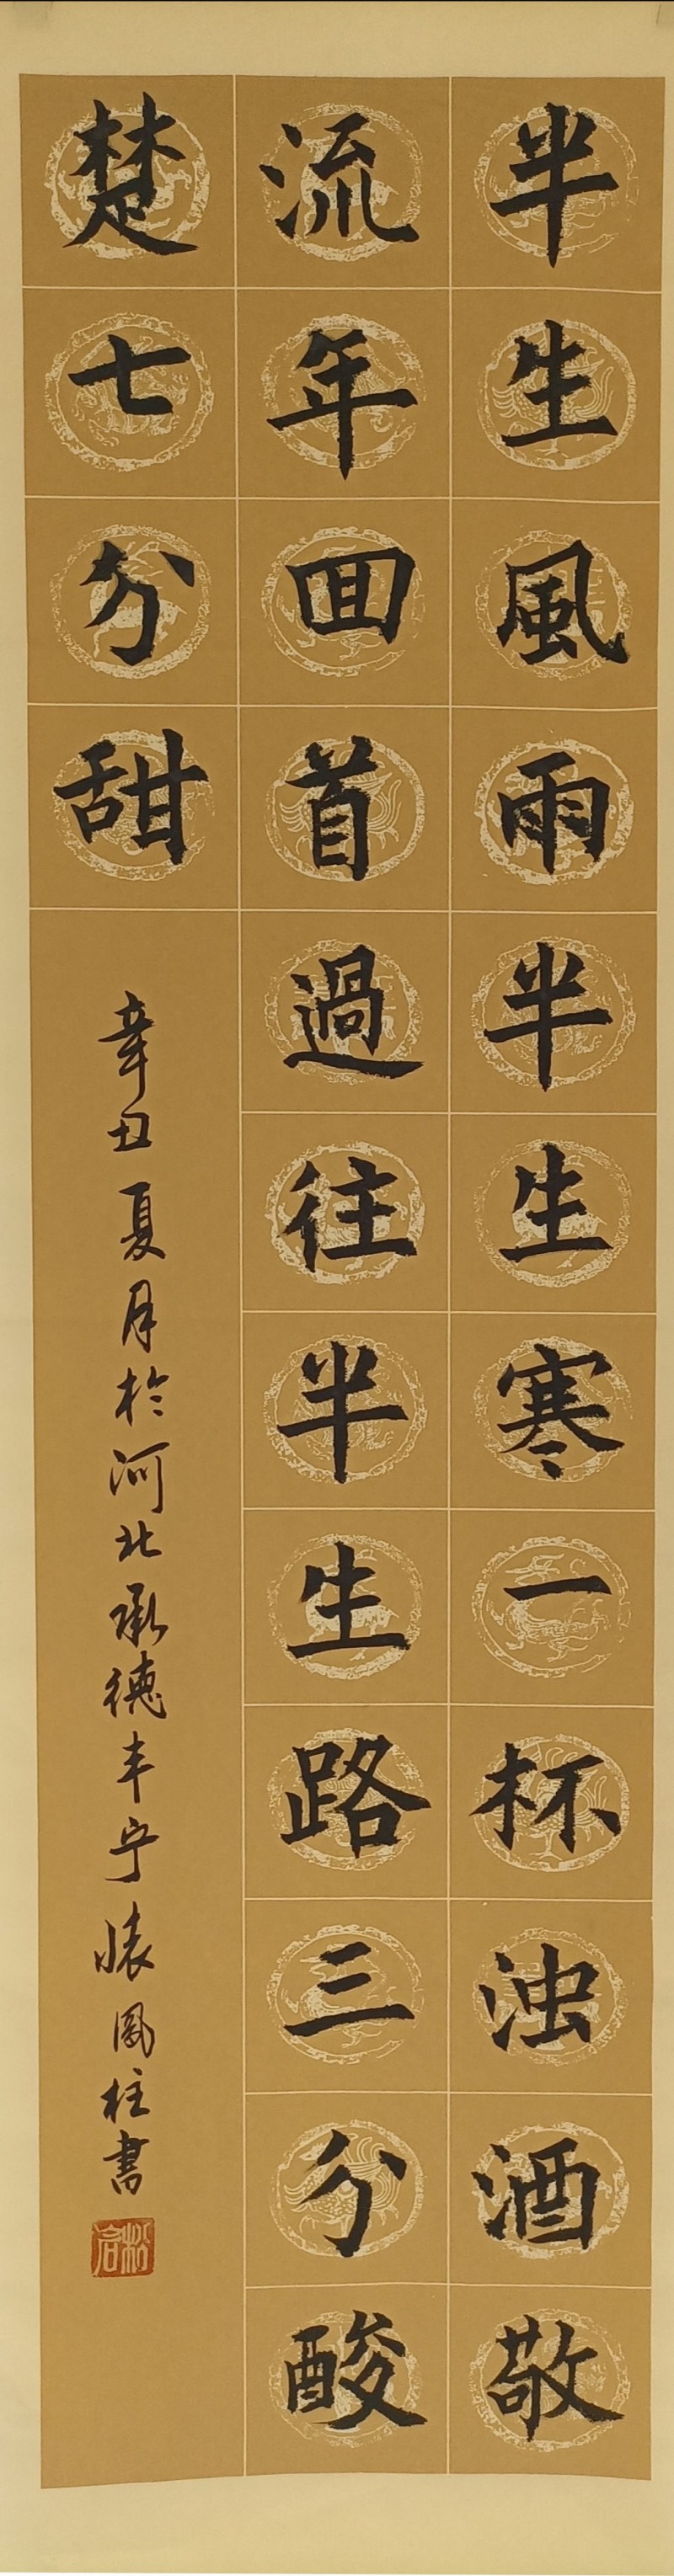 半生風雨半生寒一杯浊酒敬
流年囬首過往半生路三分酸
楚七分甜
辛丑夏月於河北承德丰宁鳳柱書